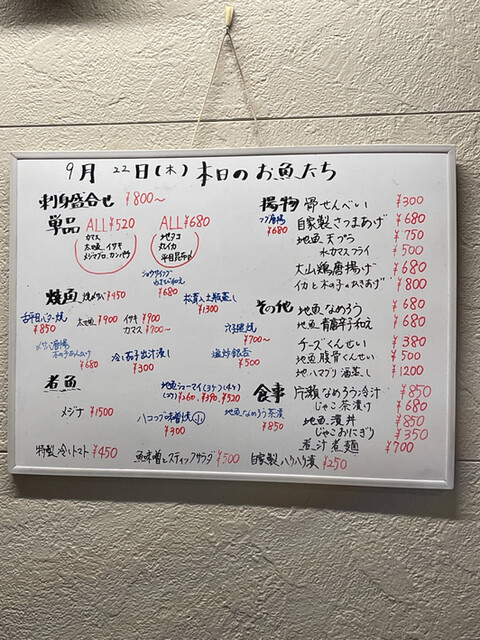 9月 22日(木) 本日のお魚たち
刺身盛合せ ¥800〜
単品 ALL¥520 ALL¥680
カマス 地ダコ
太刀魚 イサキ 丸イカ
メジマグロ カンパチ 平目昆布〆
¥680
焼魚 焼メザシ ¥450
松茸入土瓶蒸し
¥1300
舌平目バター焼
¥850
太刀魚 ¥900 イサキ ¥900
カマス ¥700〜
穴子焼
¥700〜
木の子あんかけ
¥680
冷し茄子出汁漬し
¥300
塩炒銀杏
¥500
煮魚
地魚シューマイ (2ケ) (3ケ) (4ケ)
¥260, ¥390, ¥520
メジナ ¥1500
ハコフグ味噌焼 (小)
¥300
地魚なめろう茶漬
¥850
特製冷トマト ¥450
魚味噌とスティックサラダ ¥500
自家製ハリハリ漬 ¥250
揚物 骨せんべい ¥300
フグ唐揚
¥680
自家製さつまあげ ¥680
地魚天プラ ¥750
水カマスフライ ¥500
大山鶏唐揚げ ¥680
イカと木の子のかきあげ ¥800
その他 地魚なめろう ¥680
地魚青唐辛子和え ¥680
チーズくんせい ¥380
地魚腹骨くんせい ¥500
地ハマグリ酒蒸し ¥1200
食事 片瀬なめろう冷汁 ¥850
じゃこ茶漬け ¥680
地魚漬丼 ¥850
じゃこおにぎり ¥350
煮汁煮麺 ¥700